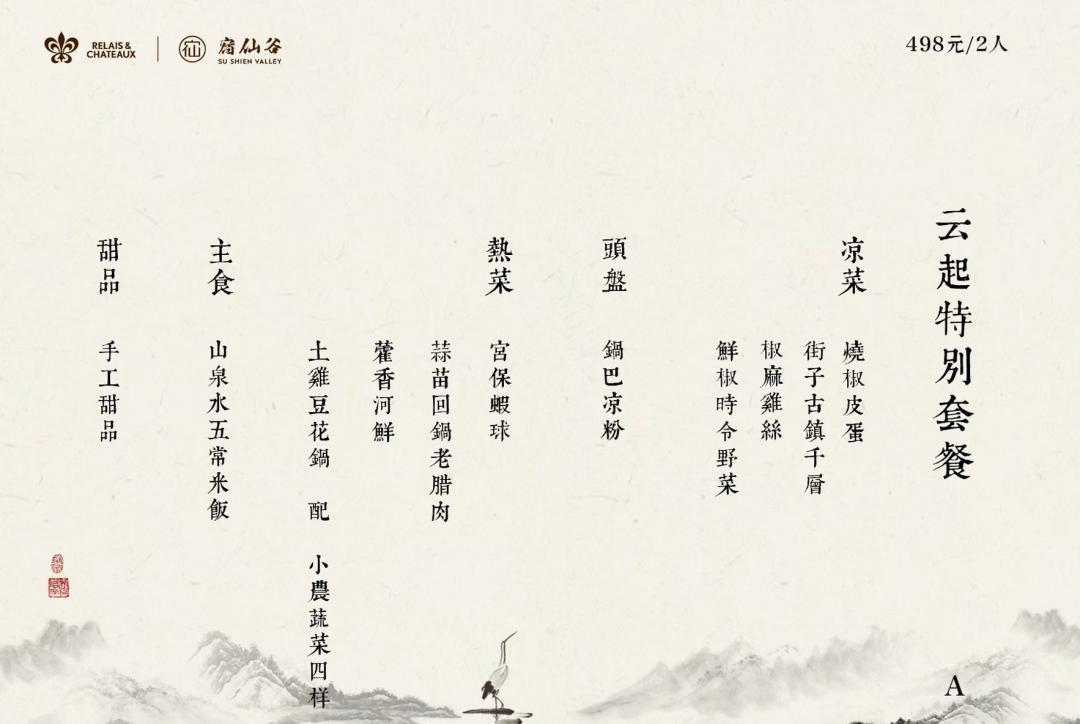 RELAIS &
CHATEAUX
宿仙谷
SU SHIEN VALLEY
498元/2人
云起特別套餐
A
凉菜
燒椒皮蛋
街子古鎮千層
椒麻雞絲
鮮椒時令野菜
頭盤
鍋巴凉粉
熱菜
宮保蝦球
蒜苗回鍋老腊肉
藿香河鮮
土雞豆花鍋 配 小農蔬菜四样
主食
山泉水五常米飯
甜品
手工甜品